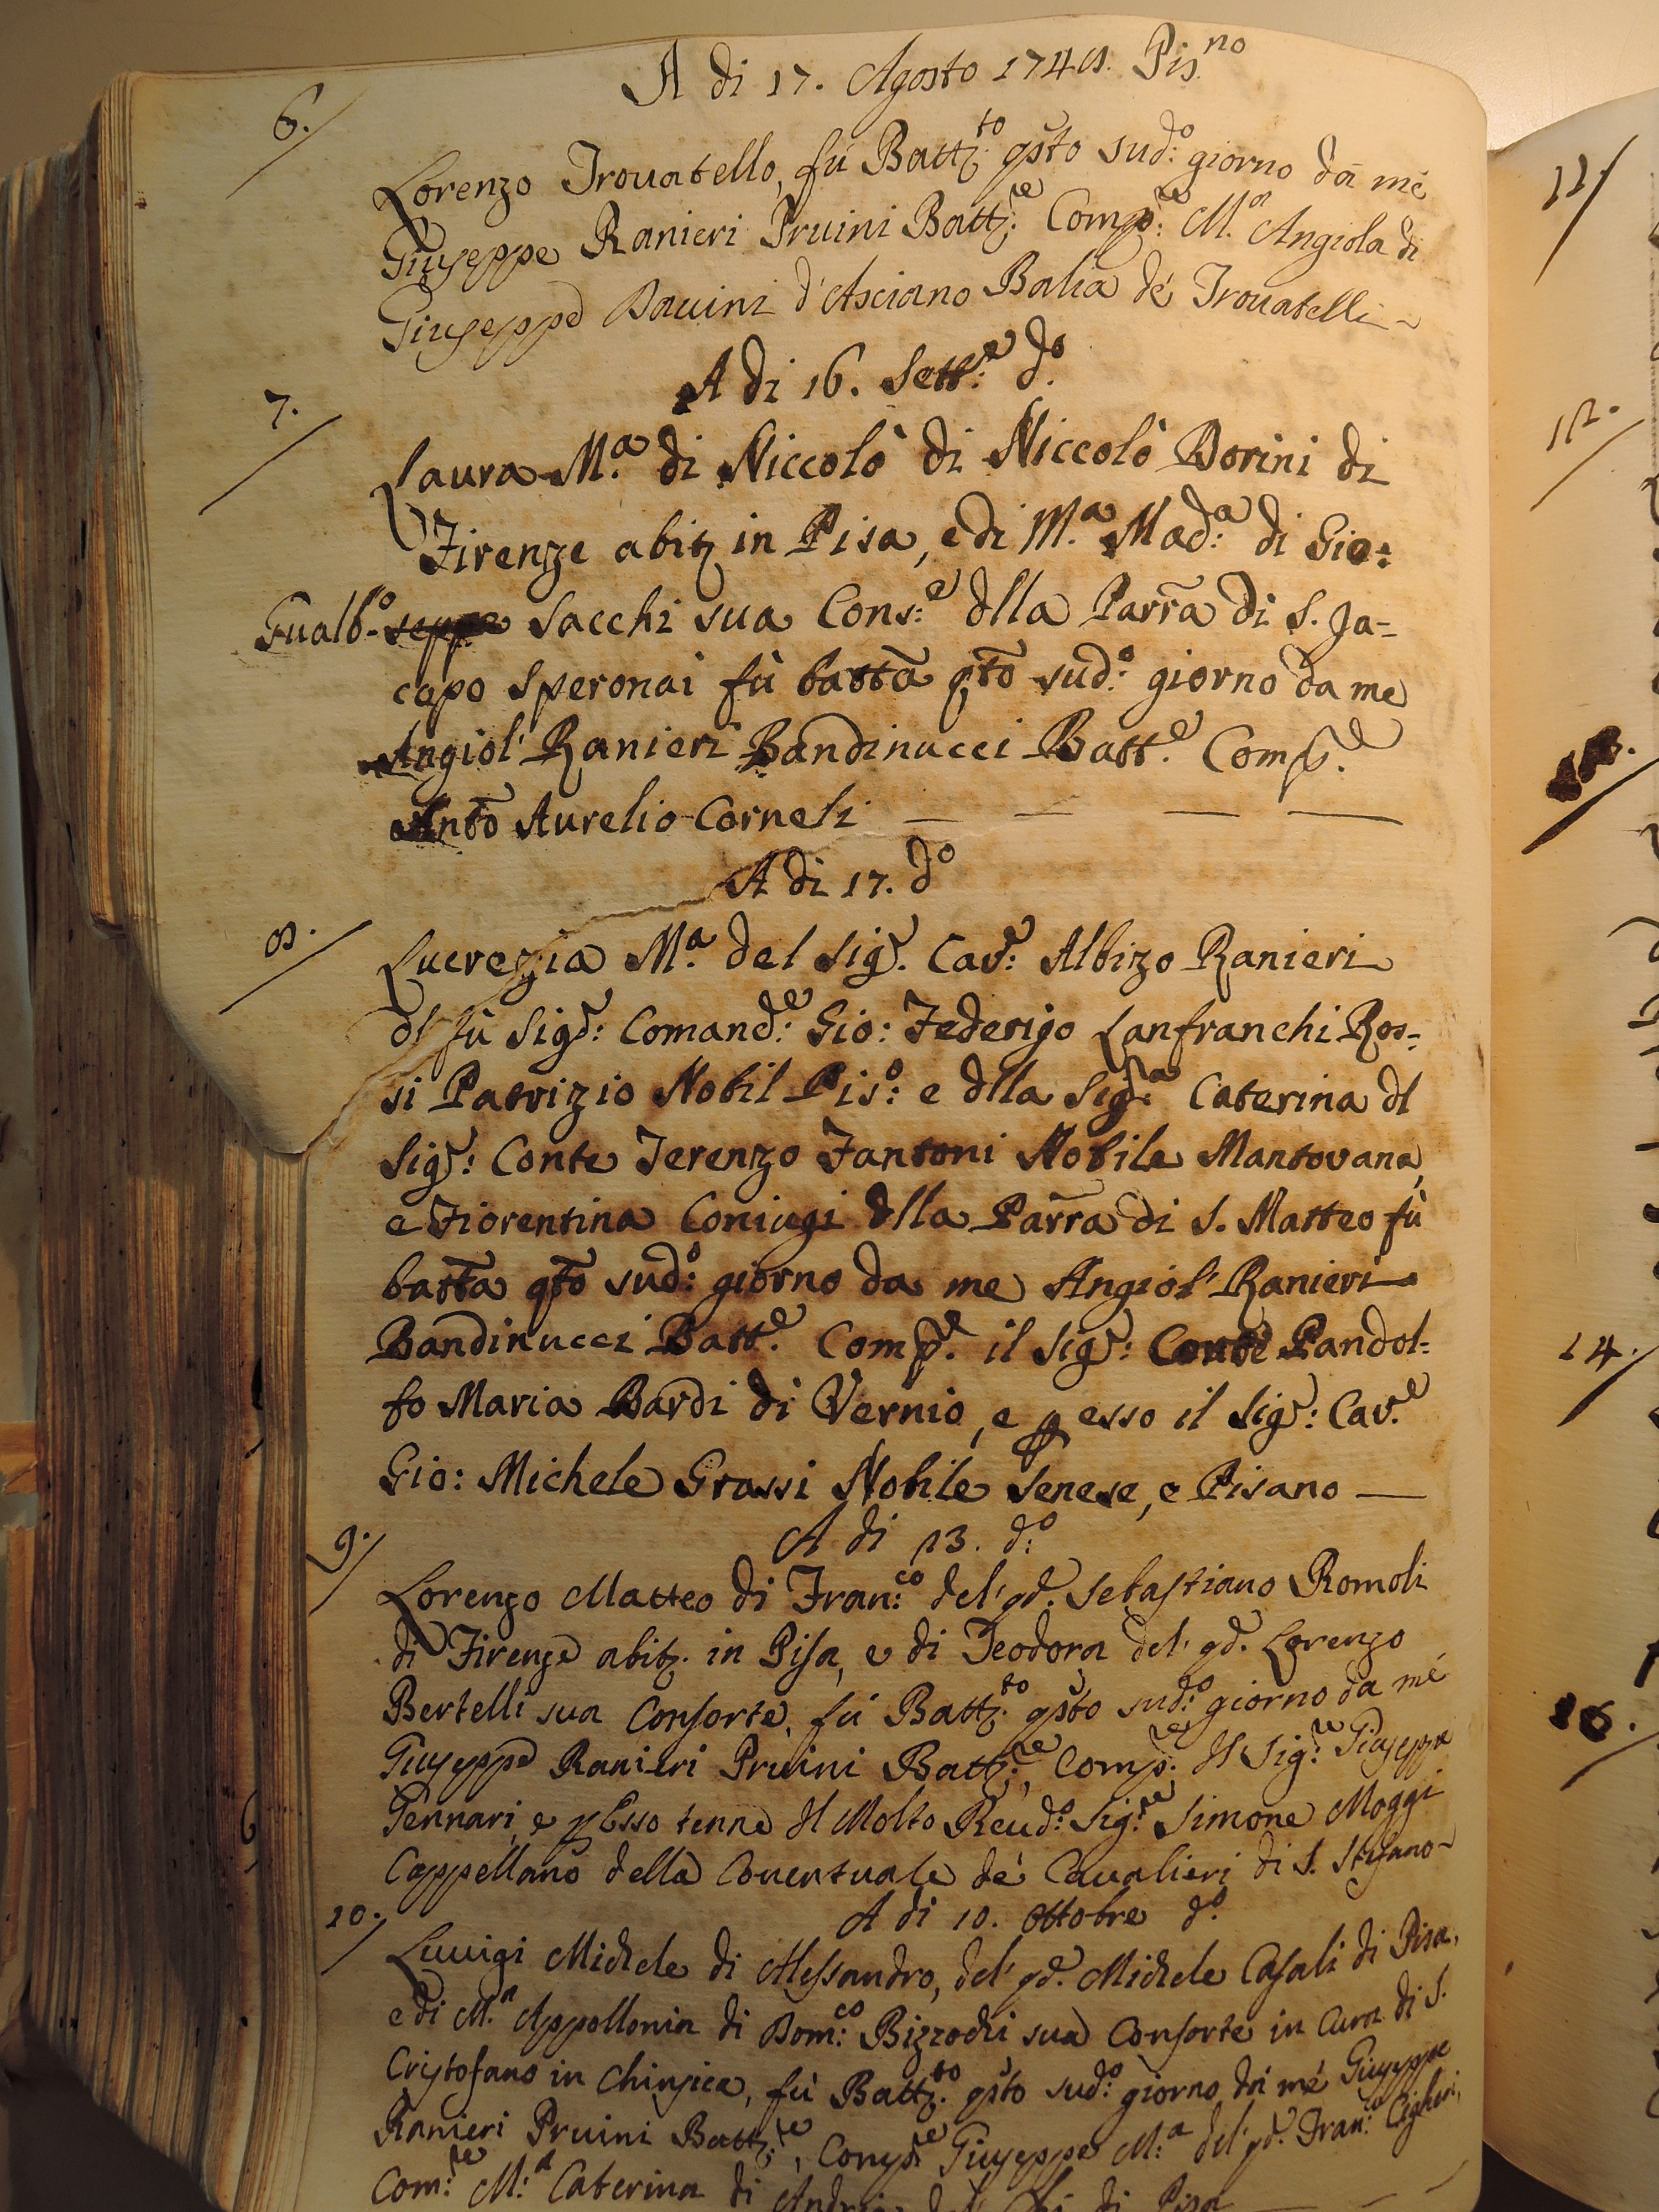 A di 17. Agosto 1748. Pis.no
6.
Lorenzo Trouatello, fù Battz.to qsto sud.o giorno da mé
Giuseppe Ranieri Pruini Battz.re Comp.re M.a Angiola di
Giuseppe Bauini d'Asciano Balia de' Trouatelli -
A di 16. Sett.e d.o
7.
Laura M.a di Niccolò di Niccolò Dorini di
Firenze abitz in Pisa, e di M.a Mad.a di Gio:
Gualb.o seppe Sacchi sua Cons.e dlla Parra di S. Ja-
copo Speronai fù batta qto sud.o giorno da me
Angiol' Ranieri Bandinucci Batt.e Comp.e
Anto Aurelio Corneli — — — —
A di 17. d.o
8.
Lucrezia M.a del Sig.r Cav.e Albizo Ranieri
dl fù Sig.r: Comand.e: Gio: Federigo Lanfranchi Ros-
si Patrizio Nobil Pis.o: e dlla Sig.ra Caterina dl
Sig.r: Conte Terenzo Fantoni Nobile Mantovana,
e Fiorentina Coniugi dlla Parra di S. Matteo fù
batta qto sud.o: giorno da me Angiol' Ranieri
Bandinucci Batt.e Comp.e il Sig.r: Conte Pandol-
fo Maria Bardi di Vernio, e p esso il Sig.r: Cav.e
Gio: Michele Grassi Nobile Senese, e Pisano —
A di 13. d.o
9.
Lorenzo Matteo di Fran.co del' qd. Sebastiano Romoli
di Firenze abitz. in Pisa, e di Teodora del' qd. Lorenzo
Bertelli sua Consorte, fù Battz.to qsto sud.o giorno da mé
Giuseppe Ranieri Pruini Battz.re, Comp.re Il Sig.re Giuseppe
Gennari, e p Esso tenne Il Molto Reud.o Sig.re Simone Moggi
Cappellano della Conuentuale de' Caualieri di S. Stefano -
A di 10. Ottobre d.o
10.
Luuigi Michele di Alessandro, del' qd. Michele Casali di Pisa,
e di M.a Appollonia di Dom.co Bizzochi sua Consorte in Cura di S.
Cristofano in Chinsica, fù Battz.to qsto sud.o giorno da mé Giuseppe
Ranieri Pruini Battz.re, Comp.re Giuseppe M.a del' qd. Fran.co
Com.re M.a Caterina di di Pisa
11
12.
14.
16.